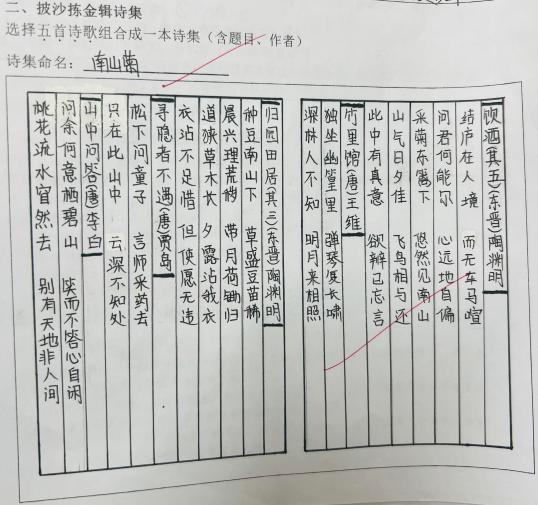 二、披沙拣金辑诗集
选择五首诗歌组合成一本诗集（含题目、作者）
诗集命名：南山菊
饮酒(其五)(东晋)陶渊明
结庐在人境 而无车马喧
问君何能尔 心远地自偏
采菊东篱下 悠然见南山
山气日夕佳 飞鸟相与还
此中有真意 欲辨已忘言
竹里馆(唐)王维
独坐幽篁里 弹琴复长啸
深林人不知 明月来相照
归园田居(其三)(东晋)陶渊明
种豆南山下 草盛豆苗稀
晨兴理荒秽 带月荷锄归
道狭草木长 夕露沾我衣
衣沾不足惜 但使愿无违
寻隐者不遇(唐)贾岛
松下问童子 言师采药去
只在此山中 云深不知处
山中问答(唐)李白
问余何意栖碧山 笑而不答心自闲
桃花流水窅然去 别有天地非人间